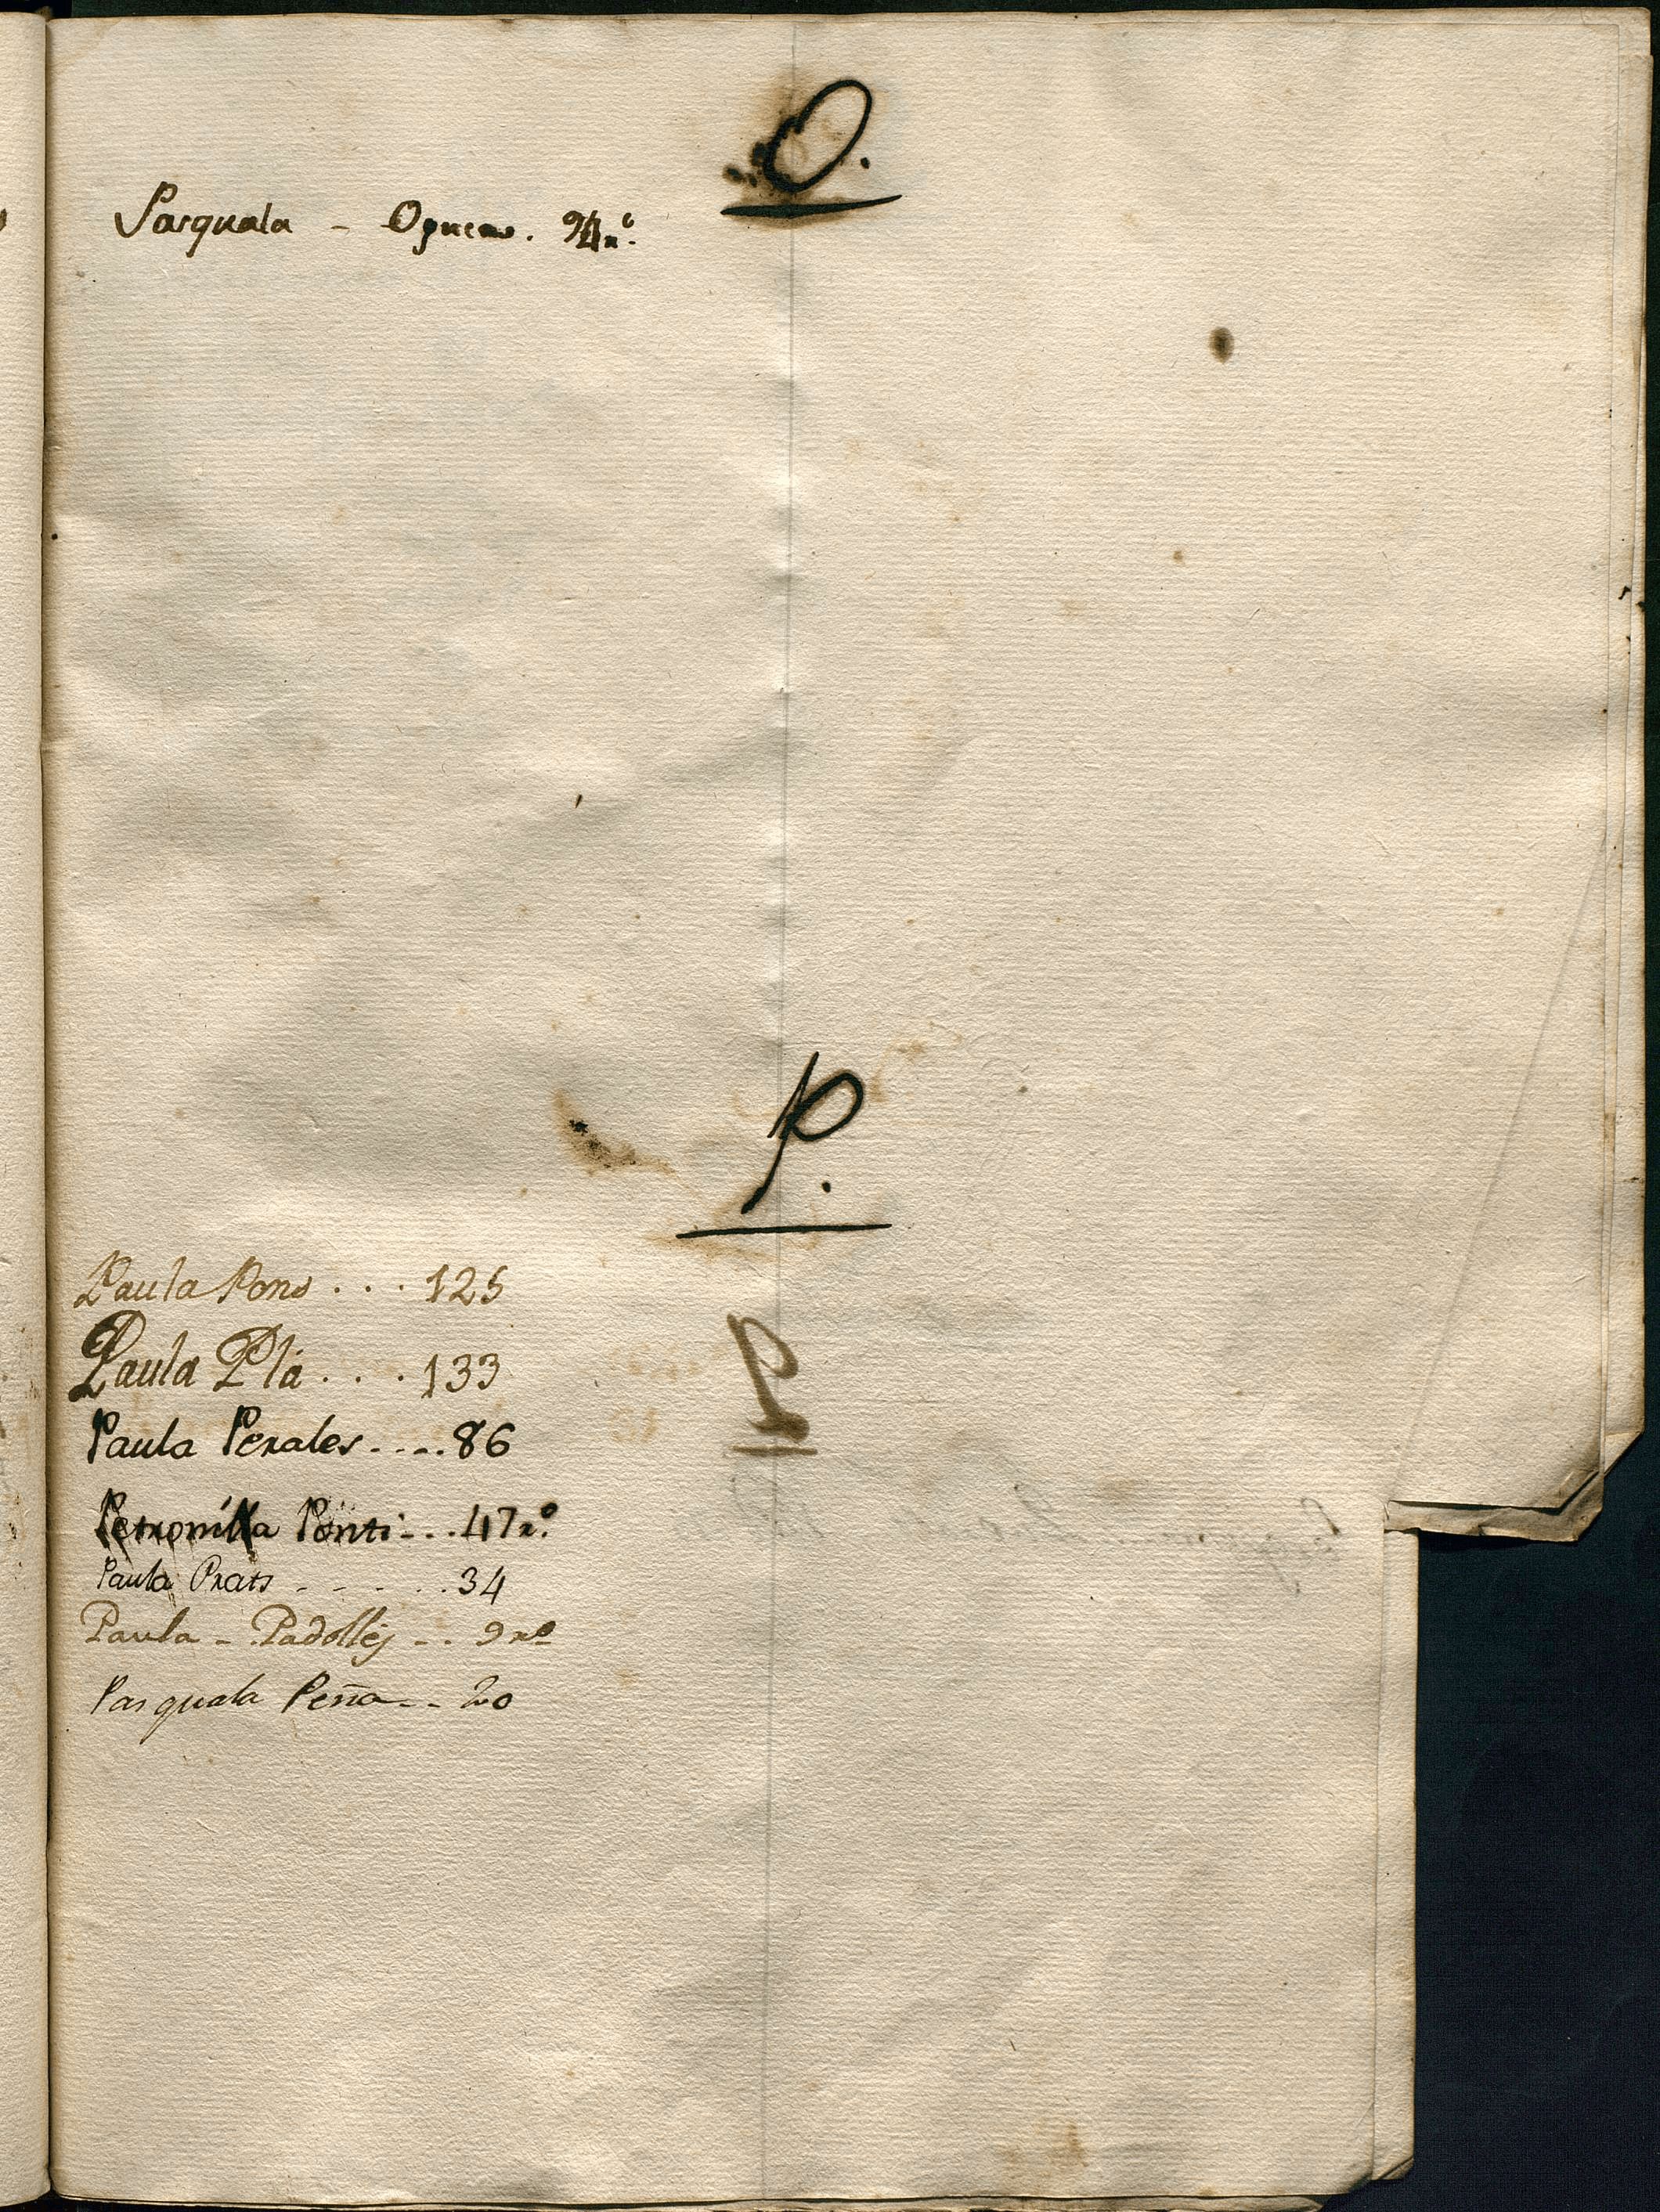 O.
Pasquala - 94 rº.
P.
Paula Pons . . . 125
Paula Plá . . . 133
Paula Perales .... 86
Petronilla Ponti - - . 47 rº.
Paula Prats - - - . . 34
Paula - Padolles - . 9 rº
Pasquala Peña - - 20